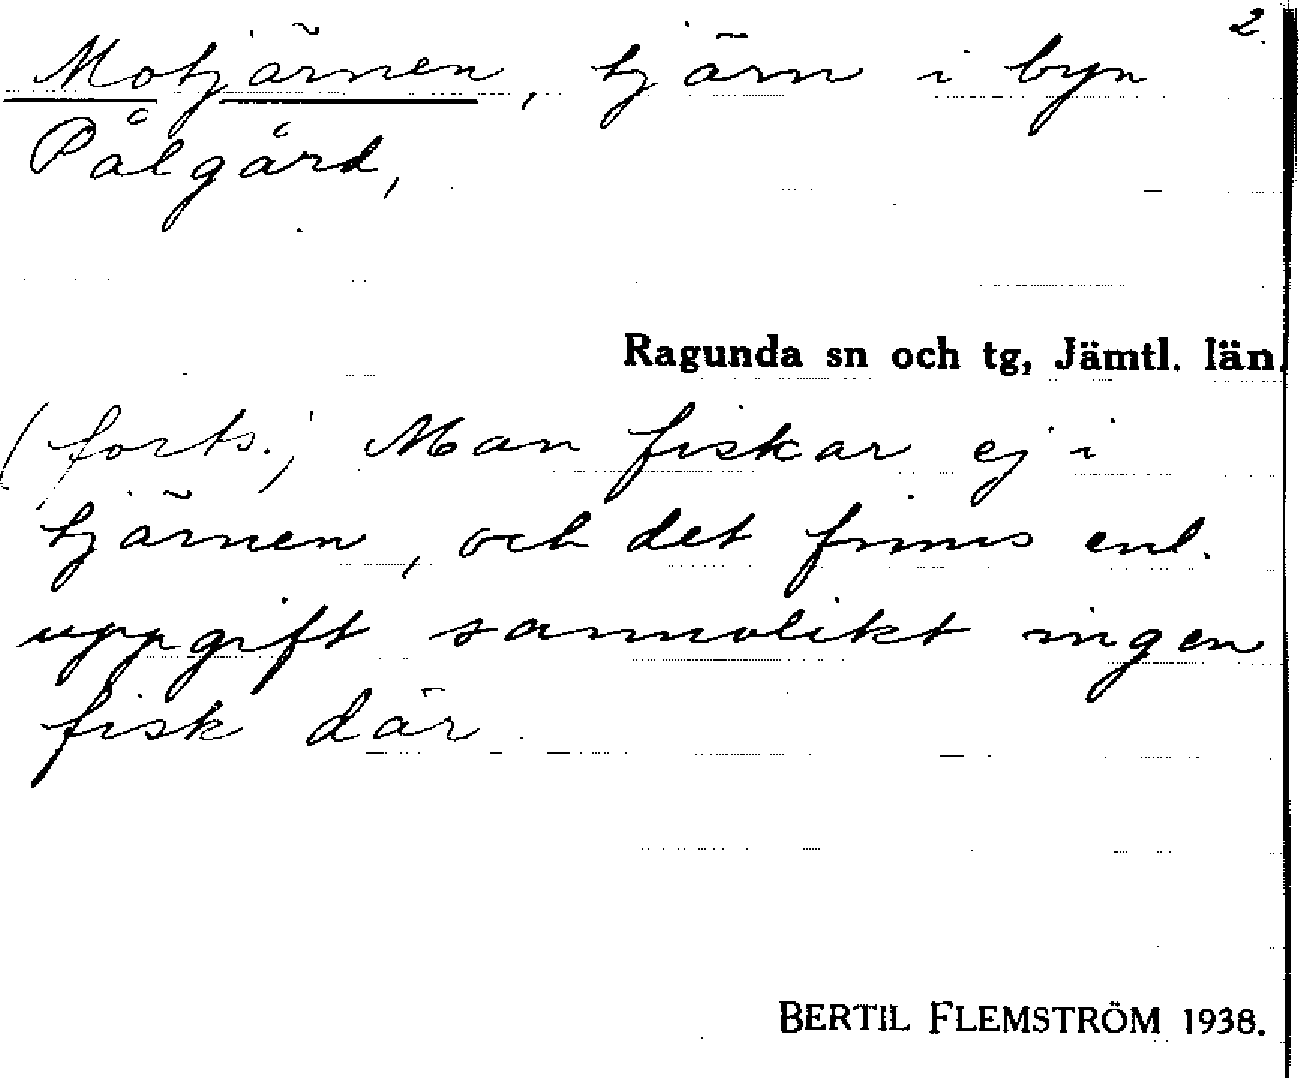 2.
Motjärnen, tjärn i byn
Pålgård,
Ragunda sn och tg, Jämtl. län.
(forts.) Man fiskar ej i
tjärnen, och det finns enl.
uppgift sannolikt ingen
fisk där.
BERTIL FLEMSTRÖM 1938.